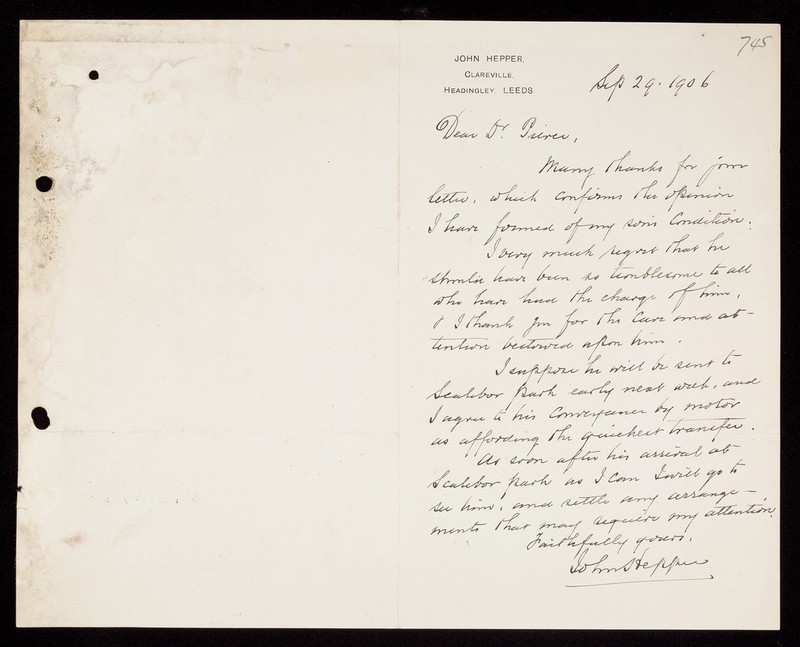 745
JOHN HEPPER,
CLAREVILLE,
HEADINGLEY, LEEDS
Sep 29. 1906
Dear Dr. Pierce,
Many thanks for your
letter, which confirms the opinion
I have formed of my son's condition.
I very much regret that he
should have been so troublesome to all
who have had the charge of him,
& I thank you for the care and at-
tention bestowed upon him.
I suppose he will be sent to
Scalebor Park early next week, and
I agree to his conveyance by motor
as affording the quickest transfer.
As soon after his arrival at
Scalebor Park as I can I will go to
see him, and settle any arrange-
ments that may require my attention.
Faithfully yours,
John Hepper